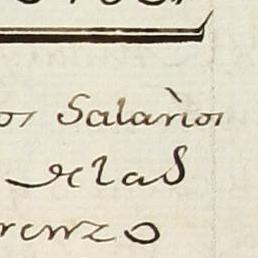 os Salarios
de las
renzo